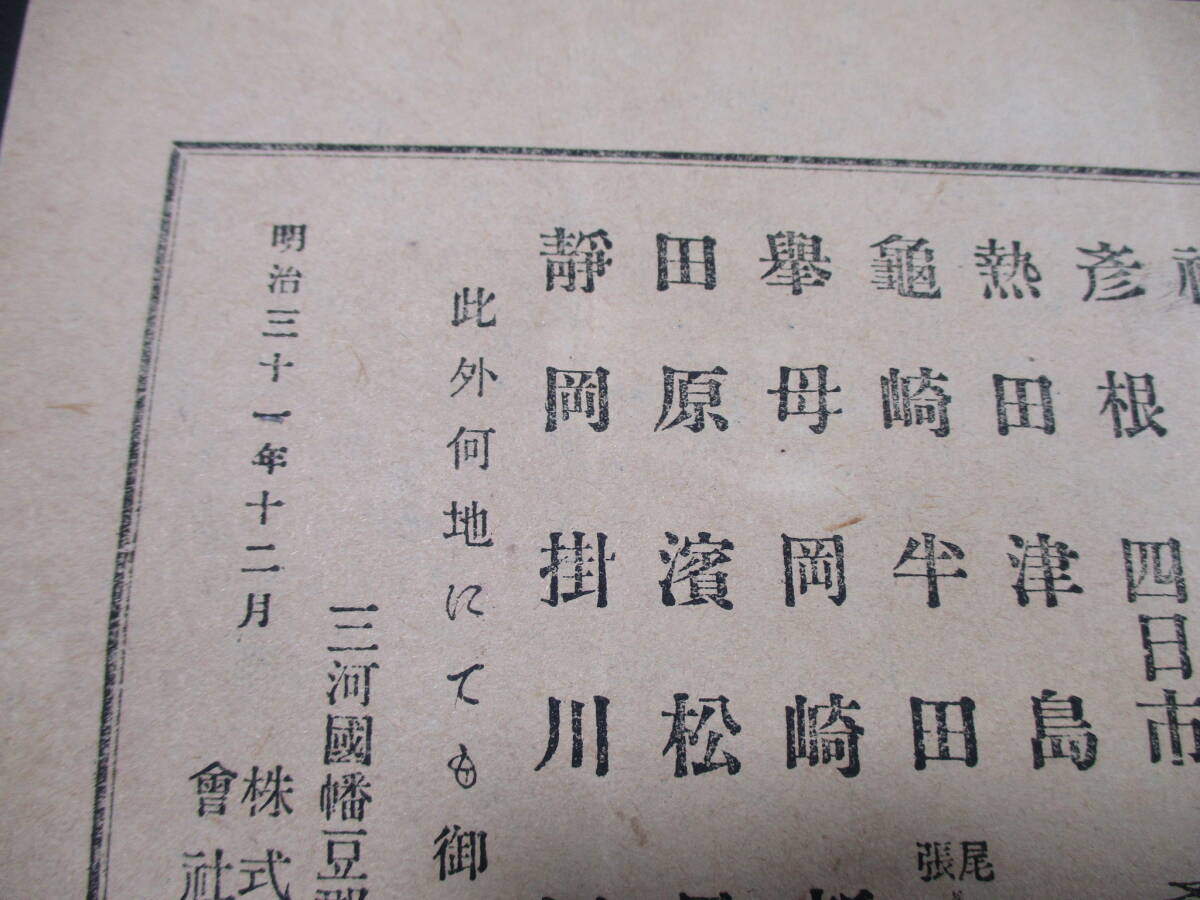 彥根 四日市
熱田 津島
龜崎 半田 尾張
擧母 岡崎
田原 濱松
靜岡 掛川
此外何地にても御
三河國幡豆郡
明治三十一年十二月
株式
會社